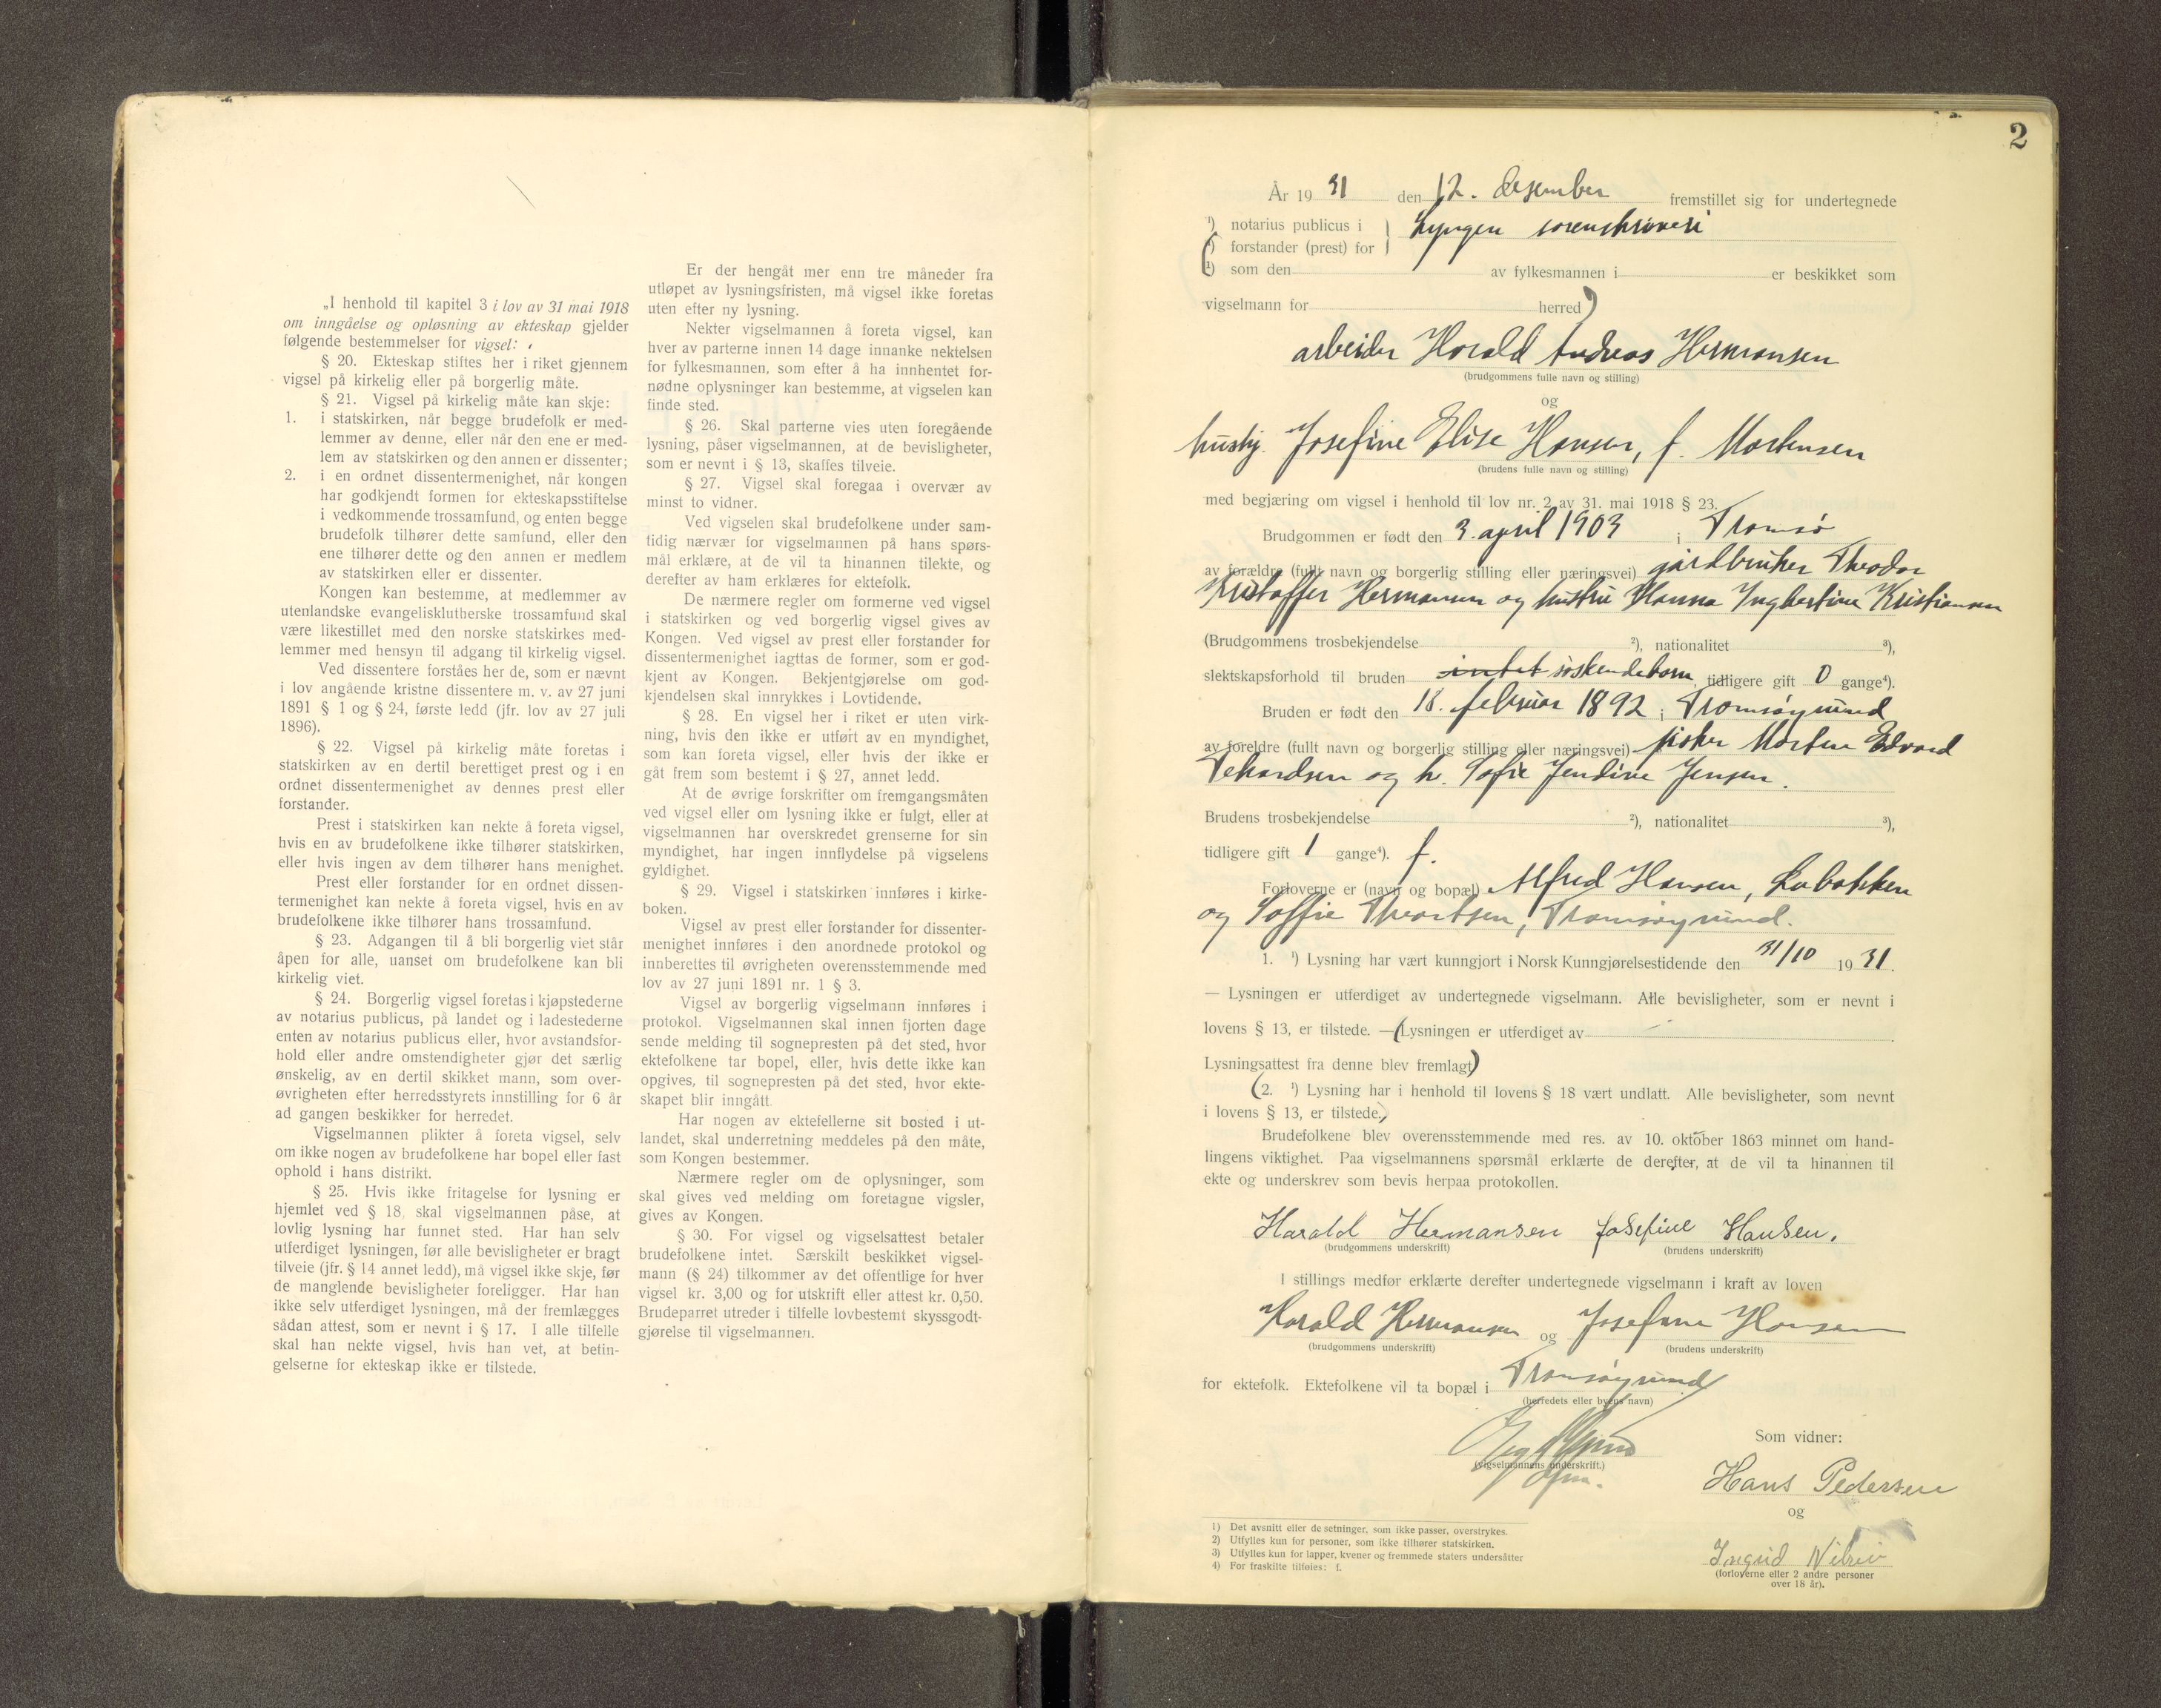 „I henhold til kapitel 3 i lov av 31 mai 1918
om inngåelse og opløsning av ekteskap gjelder
følgende bestemmelser for vigsel:
§ 20. Ekteskap stiftes her i riket gjennem
vigsel på kirkelig eller på borgerlig måte.
§ 21. Vigsel på kirkelig måte kan skje:
1. i statskirken, når begge brudefolk er med-
lemmer av denne, eller når den ene er med-
lem av statskirken og den annen er dissenter;
2. i en ordnet dissentermenighet, når kongen
har godkjendt formen for ekteskapsstiftelse
i vedkommende trossamfund, og enten begge
brudefolk tilhører dette samfund, eller den
ene tilhører dette og den annen er medlem
av statskirken eller er dissenter.
Kongen kan bestemme, at medlemmer av
utenlandske evangelisklutherske trossamfund skal
være likestillet med den norske statskirkes med-
lemmer med hensyn til adgang til kirkelig vigsel.
Ved dissentere forståes her de, som er nævnt
i lov angående kristne dissentere m. v. av 27 juni
1891 § 1 og § 24, første ledd (jfr. lov av 27 juli
1896).
§ 22. Vigsel på kirkelig måte foretas i
statskirken av en dertil berettiget prest og i en
ordnet dissentermenighet av dennes prest eller
forstander.
Prest i statskirken kan nekte å foreta vigsel,
hvis en av brudefolkene ikke tilhører statskirken,
eller hvis ingen av dem tilhører hans menighet.
Prest eller forstander for en ordnet dissen-
termenighet kan nekte å foreta vigsel, hvis en av
brudefolkene ikke tilhører hans trossamfund.
§ 23. Adgangen til å bli borgerlig viet står
åpen for alle, uanset om brudefolkene kan bli
kirkelig viet.
§ 24. Borgerlig vigsel foretas i kjøpstederne
av notarius publicus, på landet og i ladestederne
enten av notarius publicus eller, hvor avstandsfor-
hold eller andre omstendigheter gjør det særlig
ønskelig, av en dertil skikket mann, som over-
øvrigheten efter herredsstyrets innstilling for 6 år
ad gangen beskikker for herredet.
Vigselmannen plikter å foreta vigsel, selv
om ikke nogen av brudefolkene har bopel eller fast
ophold i hans distrikt.
§ 25. Hvis ikke fritagelse for lysning er
hjemlet ved § 18, skal vigselmannen påse, at
lovlig lysning har funnet sted. Har han selv
utferdiget lysningen, før alle bevisligheter er bragt
tilveie (jfr. § 14 annet ledd), må vigsel ikke skje, før
de manglende bevisligheter foreligger. Har han
ikke selv utferdiget lysningen, må der fremlægges
sådan attest, som er nevnt i § 17. I alle tilfelle
skal han nekte vigsel, hvis han vet, at betin-
gelserne for ekteskap ikke er tilstede.
Er der hengåt mer enn tre måneder fra
utløpet av lysningsfristen, må vigsel ikke foretas
uten efter ny lysning.
Nekter vigselmannen å foreta vigsel, kan
hver av parterne innen 14 dage innanke nektelsen
for fylkesmannen, som efter å ha innhentet for-
nødne oplysninger kan bestemme, at vigselen kan
finde sted.
§ 26. Skal parterne vies uten foregående
lysning, påser vigselmannen, at de bevisligheter,
som er nevnt i § 13, skaffes tilveie.
§ 27. Vigsel skal foregaa i overvær av
minst to vidner.
Ved vigselen skal brudefolkene under sam-
tidig nærvær for vigselmannen på hans spørs-
mål erklære, at de vil ta hinannen tilekte, og
derefter av ham erklæres for ektefolk.
De nærmere regler om formerne ved vigsel
i statskirken og ved borgerlig vigsel gives av
Kongen. Ved vigsel av prest eller forstander for
dissentermenighet iagttas de former, som er god-
kjent av Kongen. Bekjentgjørelse om god-
kjendelsen skal innrykkes i Lovtidende.
§ 28. En vigsel her i riket er uten virk-
ning, hvis den ikke er utført av en myndighet,
som kan foreta vigsel, eller hvis der ikke er
gåt frem som bestemt i § 27, annet ledd.
At de øvrige forskrifter om fremgangsmåten
ved vigsel eller om lysning ikke er fulgt, eller at
vigselmannen har overskredet grenserne for sin
myndighet, har ingen innflydelse på vigselens
gyldighet.
§ 29. Vigsel i statskirken innføres i kirke-
boken.
Vigsel av prest eller forstander for dissenter-
menighet innføres i den anordnede protokol og
innberettes til øvrigheten overensstemmende med
lov av 27 juni 1891 nr. 1 § 3.
Vigsel av borgerlig vigselmann innføres i
protokol. Vigselmannen skal innen fjorten dage
sende melding til sognepresten på det sted, hvor
ektefolkene tar bopel, eller, hvis dette ikke kan
opgives, til sognepresten på det sted, hvor ekte-
skapet blir inngått.
Har nogen av ektefellerne sit bosted i ut-
landet, skal underretning meddeles på den måte,
som Kongen bestemmer.
Nærmere regler om de oplysninger, som
skal gives ved melding om foretagne vigsler,
gives av Kongen.
§ 30. For vigsel og vigselsattest betaler
brudefolkene intet. Særskilt beskikket vigsel-
mann (§ 24) tilkommer av det offentlige for hver
vigsel kr. 3,00 og for utskrift eller attest kr. 0,50.
Brudeparret utreder i tilfelle lovbestemt skyssgodt-
gjørelse til vigselmannen.
2
År 1931 den 12. desember fremstillet sig for undertegnede
¹) notarius publicus i } Lyngen sorenskriveri
¹) forstander (prest) for
¹) som den av fylkesmannen i er beskikket som
vigselmann for herred)
arbeider Harald Andreas Hermansen
(brudgommens fulle navn og stilling)
og
hushj. Josefine Elise Hansen, f. Mortensen
(brudens fulle navn og stilling)
med begjæring om vigsel i henhold til lov nr. 2 av 31. mai 1918 § 23.
Brudgommen er født den 3. april 1903 i Tromsø
av forældre (fullt navn og borgerlig stilling eller næringsvei) gårdbruker Theodor
Kristoffer Hermansen og hustru Hanna Ingbertine Kristiansen
(Brudgommens trosbekjendelse ²), nationalitet ³),
slektskapsforhold til bruden intet søskendebarn, tidligere gift 0 gange⁴).
Bruden er født den 18. februar 1892 i Tromsøysund
av foreldre (fullt navn og borgerlig stilling eller næringsvei) fisker Morten Edvard
og h. Sofie Jendine Jensen.
Brudens trosbekjendelse ²), nationalitet ³),
tidligere gift 1 gange⁴). f.
Forloverne er (navn og bopæl) Alfred Hansen,
og Soffie Tromsøysund.
1. ¹) Lysning har vært kunngjort i Norsk Kunngjørelsestidende den 31/10 1931.
— Lysningen er utferdiget av undertegnede vigselmann. Alle bevisligheter, som er nevnt i
lovens § 13, er tilstede. —(Lysningen er utferdiget av
Lysningsattest fra denne blev fremlagt)
(2. ¹) Lysning har i henhold til lovens § 18 vært undlatt. Alle bevisligheter, som nevnt
i lovens § 13, er tilstede.)
Brudefolkene blev overensstemmende med res. av 10. oktober 1863 minnet om hand-
lingens viktighet. Paa vigselmannens spørsmål erklærte de derefter, at de vil ta hinannen til
ekte og underskrev som bevis herpaa protokollen.
Harald Hermansen Josefine Hansen.
(brudgommens underskrift) (brudens underskrift)
I stillings medfør erklærte derefter undertegnede vigselmann i kraft av loven
Harald Hermansen og Josefine Hansen
(brudgommens underskrift) (brudens underskrift)
for ektefolk. Ektefolkene vil ta bopæl i Tromsøysund
(herredets eller byens navn)
(vigselmannens underskrift.)
Som vidner:
Hans Pedersen
og
Ingrid
(forloverne eller 2 andre personer
over 18 år).
1) Det avsnitt eller de setninger, som ikke passer, overstrykes.
2) Utfylles kun for personer, som ikke tilhører statskirken.
3) Utfylles kun for lapper, kvener og fremmede staters undersåtter
4) For fraskilte tilføies: f.